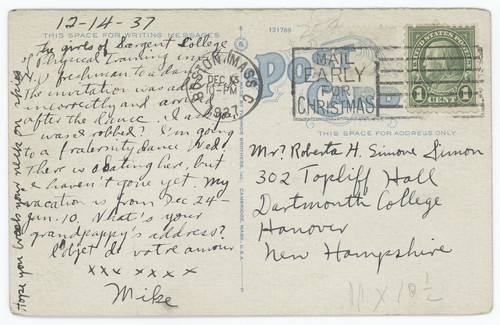 12-14-37
THIS SPACE FOR WRITING MESSAGES
131769
The girls of Sargent College
of Physical Training
freshman to a dance
The invitation was
incorrectly and
after the dance.
we robbed? I'm going
to a fraternity dance Wed.
There is a Dating Bar, but
I haven't gone yet. My
vacation is from Dec 24-
Jan. 10. What's your
grandpappy's address?
L'objet de votre amour
xxx xxxx
Mike
Hope you wash your neck on
BOSTON, MASS. C.
DEC 15
10-PM
1937
MAIL
EARLY
FOR
CHRISTMAS
POST
CARD
UNITED STATES POSTAGE
1 CENT 1
THIS SPACE FOR ADDRESS ONLY
BROTHERS, INC., CAMBRIDGE, MASS., U.S.A.
Mr. Roberta H. Simone Simon
302 Topliff Hall
Dartmouth College
Hanover
New Hampshire